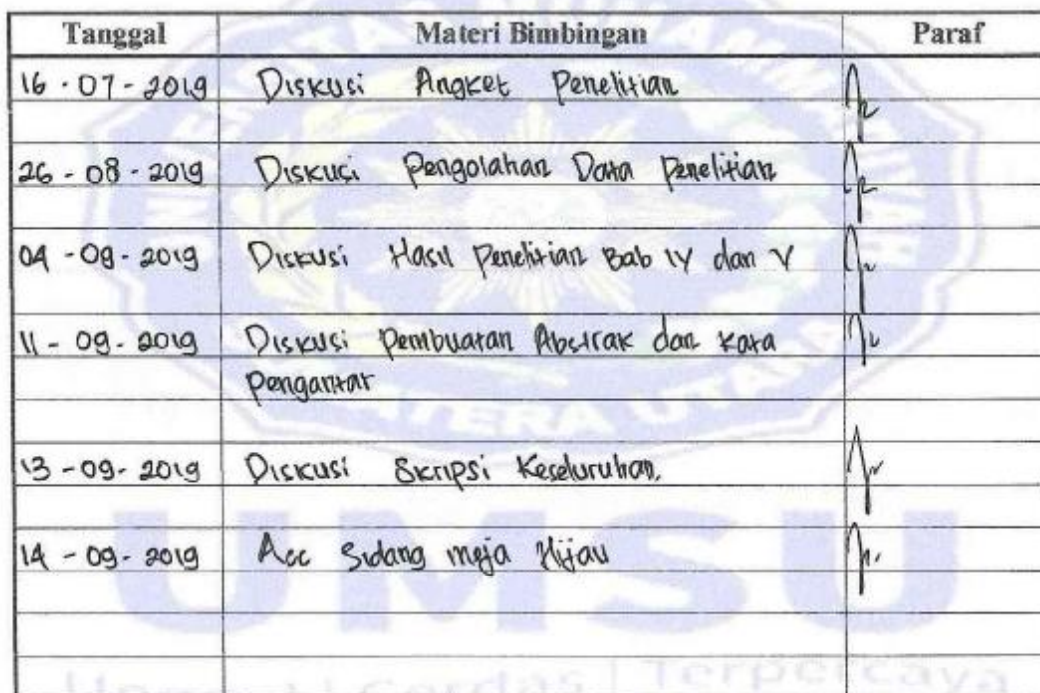 Tanggal Materi Bimbingan Paraf
16 - 07 - 2019 Diskusi Angket Penelitian
26 - 08 - 2019 Diskusi Pengolahan Data Penelitian
04 - 09 - 2019 Diskusi Hasil Penelitian Bab IV dan V
11 - 09 - 2019 Diskusi Pembuatan Abstrak dan Kata
Pengantar
13 - 09 - 2019 Diskusi Skripsi Keseluruhan.
14 - 09 - 2019 Acc Sidang meja Hijau
UMSU
Unggul | Cerdas | Terpercaya